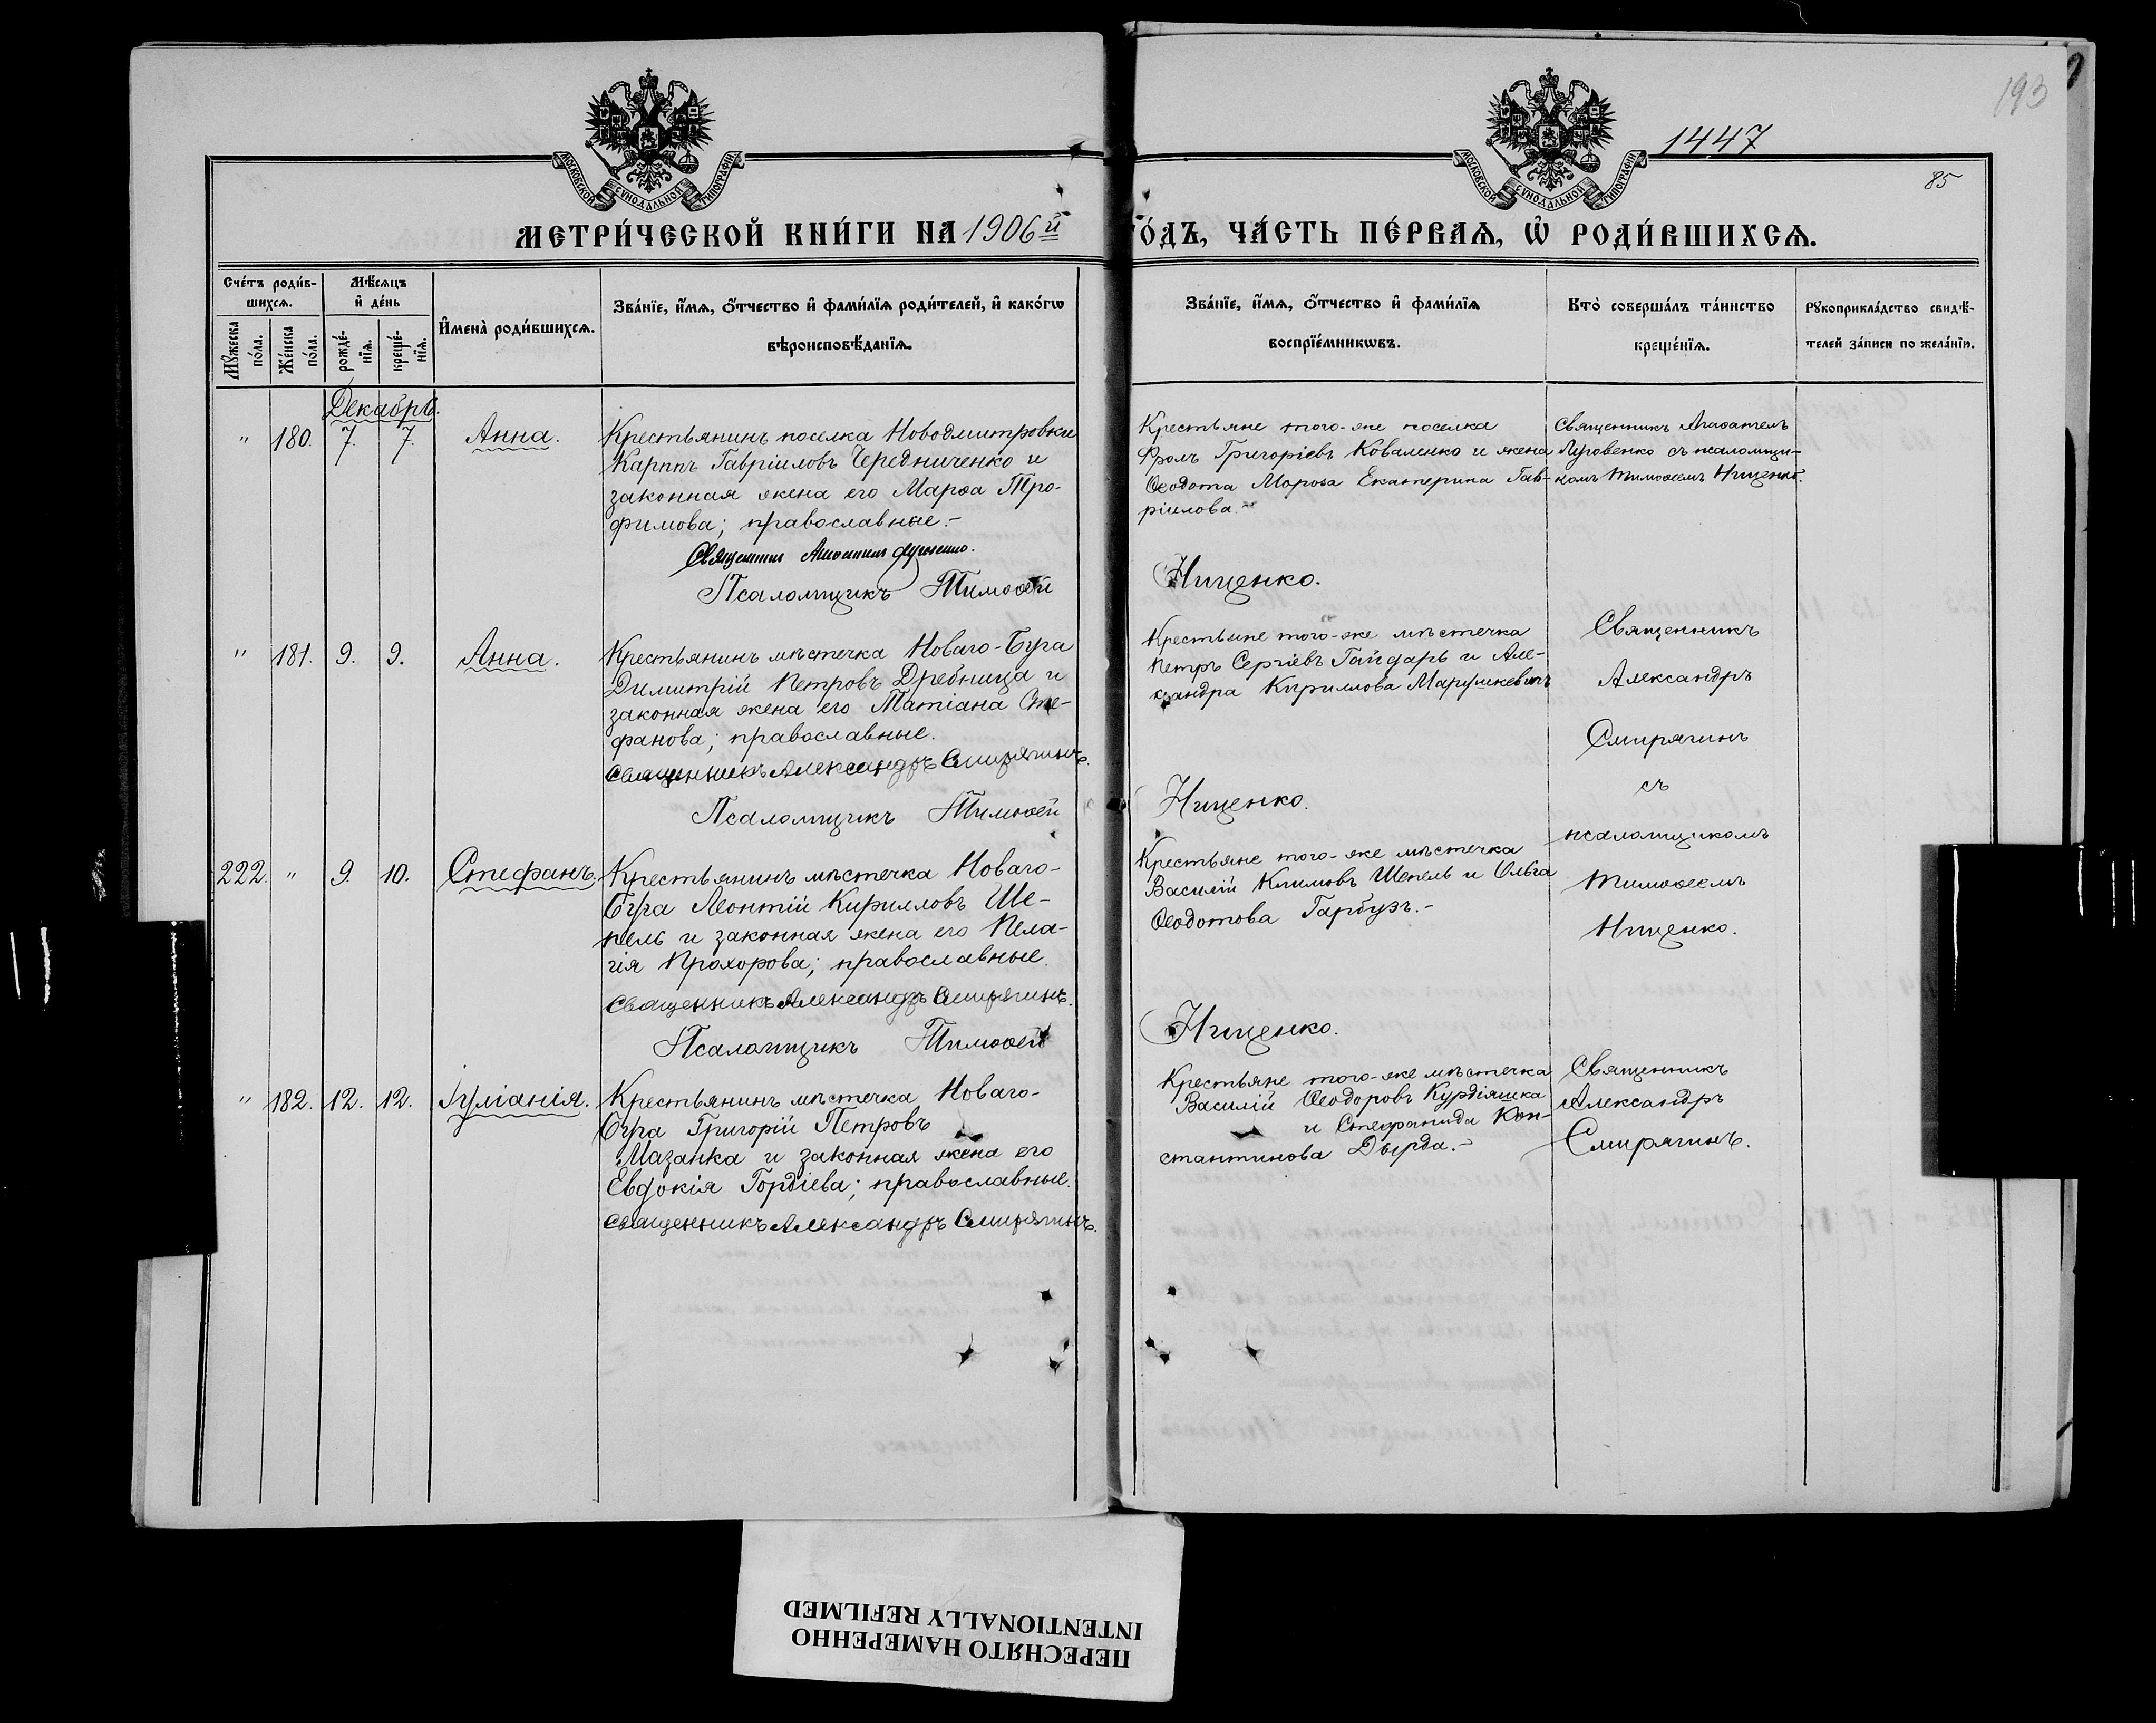 193
1447
85
МОСКОВСКОЙ СѴНОДАЛЬНОЙ ТИПОГРАФІИ
МОСКОВСКОЙ СѴНОДАЛЬНОЙ ТИПОГРАФІИ
МЕТРИ́ЧЕСКОЙ КНИ́ГИ НА 1906й
О́ДЪ, ЧА́СТЬ ПЕ́РВАѦ, Ѡ҆ РОДИ́ВШИХСѦ.
Сче́тъ роди́в-
шихсѧ.
Мѣ́сѧцъ
и҆ де́нь
Мꙋ́жеска по́ла.
Же́нска по́ла.
рожде́-
нїѧ.
креще́-
нїѧ.
И҆мена̀ роди́вшихсѧ.
Зва́нїе, и҆́мѧ, о҆́тчество и҆ фами́лїѧ роди́телей, и҆ како́гѡ
вѣроисповѣ́данїѧ.
Зва́нїе, и҆́мѧ, о҆́тчество и҆ фами́лїѧ
воспрїе́мникѡвъ.
Кто̀ соверша́лъ та́инство
креще́нїѧ.
Рꙋкоприкла́дство свидѣ́-
телей за́писи по жела́нїи.
Декабрь.
" 180. 7. 7. Анна.
Крестьянинъ поселка Новодмитровки
Карпъ Гавріиловъ Чередниченко и
законная жена его Марѳа Тро-
фимова; православные.-
Священникъ
Псаломщикъ Тимоѳей
Крестьяне того-же поселка
Фролъ Григоріевъ Коваленко и жена
Ѳеодота Мороза Екатерина Гав-
ріилова.-
Ниценко.
Священникъ Агаѳангелъ
съ псаломщи-
комъ Тимоѳеемъ Ниценко.
" 181. 9. 9. Анна.
Крестьянинъ мѣстечка Новаго-Буга
Димитрій Петровъ Дребница и
законная жена его Татіана Сте-
фанова; православные.
Священникъ Александръ Смирягинъ.
Псаломщикъ Тимоѳей
Крестьяне того-же мѣстечка
Петръ Сергіевъ Гайдарь и Але-
ксандра Кириллова Марушкевичъ
Ниценко.
Священникъ
Александръ
Смирягинъ
съ
псаломщикомъ
Тимоѳеемъ
Ниценко.
222. " 9. 10. Стефанъ.
Крестьянинъ мѣстечка Новаго-
Буга Леонтій Кирилловъ Ше-
пель и законная жена его Пела-
гія Прохорова; православные.
Священникъ Александръ Смирягинъ.
Псаломщикъ Тимоѳей
Крестьяне того-же мѣстечка
Василій Климовъ Шепель и Ольга
Ѳеодотова Гарбузъ.-
Ниценко.
" 182. 12. 12. Іуліанія.
Крестьянинъ мѣстечка Новаго-
Буга Григорій Петровъ
Мазанка и законная жена его
Евдокія Гордіева; православные.
Священникъ Александръ Смирягинъ.
Крестьяне того-же мѣстечка
Василій Ѳеодоровъ Курдіяшка
и Стефанида Кон-
стантинова Дырда.-
Священникъ
Александръ
Смирягинъ.
ПЕРЕСНЯТО НАМЕРЕННО
INTENTIONALLY REFILMED